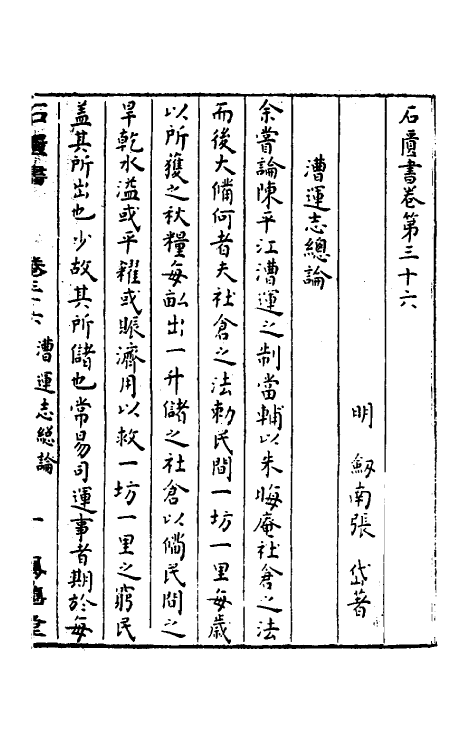 石匱書卷第三十六
明 劔南張 岱著
漕運志總論
余嘗論陳平江漕運之制當輔以朱晦庵社倉之法
而後大備何者夫社倉之法勑民間一坊一里每歲
以所獲之秋糧每畝出一升儲之社倉以備民間之
旱乾水溢或平糴或賑濟用以救一坊一里之窮民
蓋其所出也少故其所儲也常易司運事者期於每
石匱書 卷三十六 漕運志總論 一 鳳嬉堂